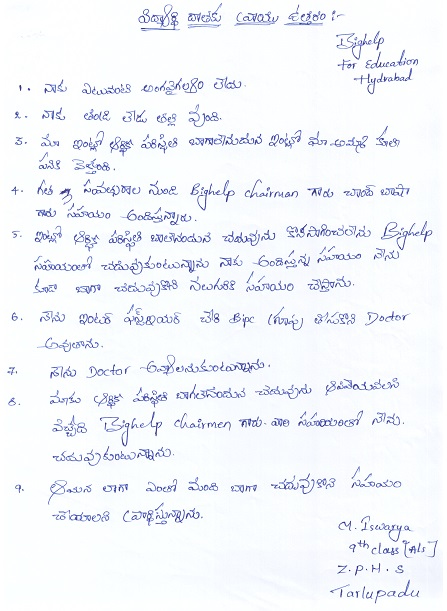 విద్యార్థి దాతకు వ్రాయు ఉత్తరం :-
Bighelp
For Education
Hydrabad
1. నాకు ఎటువంటి అంగవైగల్యం లేదు.
2. నాకు తండ్రి లేడు తల్లి వుంది.
3. మా ఇంట్లో ఆర్థిక పరిస్థితి బాగాలేనందున ఇంట్లో మా అమ్మ కూలి
పనికి వెళ్తుంది.
4. గత సంవత్సరాల నుండి Bighelp chairman గారు చాంద్ బాషా
గారు సహాయం అందిస్తున్నారు.
5. ఇంట్లో ఆర్థిక పరిస్థితి బాలేనందున చదువును కొనసాగించలేను Bighelp
సహాయంలో చదువుకుంటున్నాను నాకు అందిస్తున్న సహాయం నేను
కూడా బాగా చదువుకొని నలుగురికి సహాయం చేస్తాను.
6. నేను ఇంటర్ ఫస్ట్ఇయర్ చేరి Bipc గ్రూపు తీసుకొని Doctor
అవుతాను.
7. నేను Doctor అవ్వాలనుకుంటున్నాను.
8. మాకు ఆర్థిక పరిస్థితి బాగలేనందున చదువును ఆపివేయవలసి
వచ్చేది Bighelp chairmen గారు. వారి సహాయంతో నేను.
చదువుకుంటున్నాను.
9. ఆయన లాగా ఎంతో మంది బాగా చదువుకొని సహాయం
చేయాలని ప్రార్థిస్తున్నాను.
M. Iswarya
9th class
Z.P.H.S
Tarlupadu